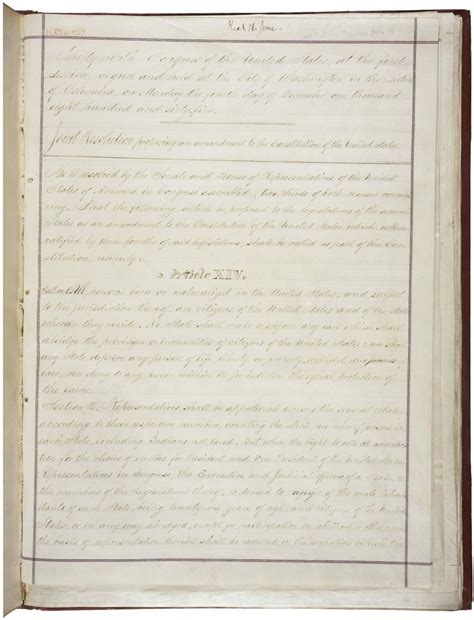 Congress of the United States, at the first
Session, begun and held at the City of Washington, in the
of Columbia, on Monday the fourth day of December one thousand
eight hundred and sixty-five.
Joint Resolution proposing an amendment to the Constitution of the United States.
Be it resolved by the Senate and House of Representatives of the United
States of America in Congress assembled, (two thirds of both Houses
That the following article be proposed to the legislatures of the several
States as an amendment to the Constitution of the United States which, when
ratified by three fourths of said legislatures, shall be valid as part of the Con-
stitution, namely:
Article XIV.
All persons born or naturalized in the United States, and subject
to the jurisdiction thereof, are citizens of the United States and of the State
wherein they reside. No State shall make or enforce any law which shall
abridge the privileges or immunities of citizens of the United States; nor shall
any State deprive any person of life, liberty, or property, without due process of
law; nor deny to any person within its jurisdiction the equal protection of
the laws.
Section 2. Representatives shall be apportioned among the several States
according to their respective numbers, counting the whole number of persons in
each State, excluding Indians not taxed. But when the right to vote at any elec-
tion for the choice of electors for President and Vice President of the United States,
Representatives in Congress, the Executive and Judicial officers of a State, or
the members of the Legislature thereof, is denied to any of the male inhabi-
tants of such State, being twenty-one years of age, and citizens of the United
States, or in any way abridged, except for participation in rebellion, or other crime,
the basis of representation therein shall be reduced in the proportion which the